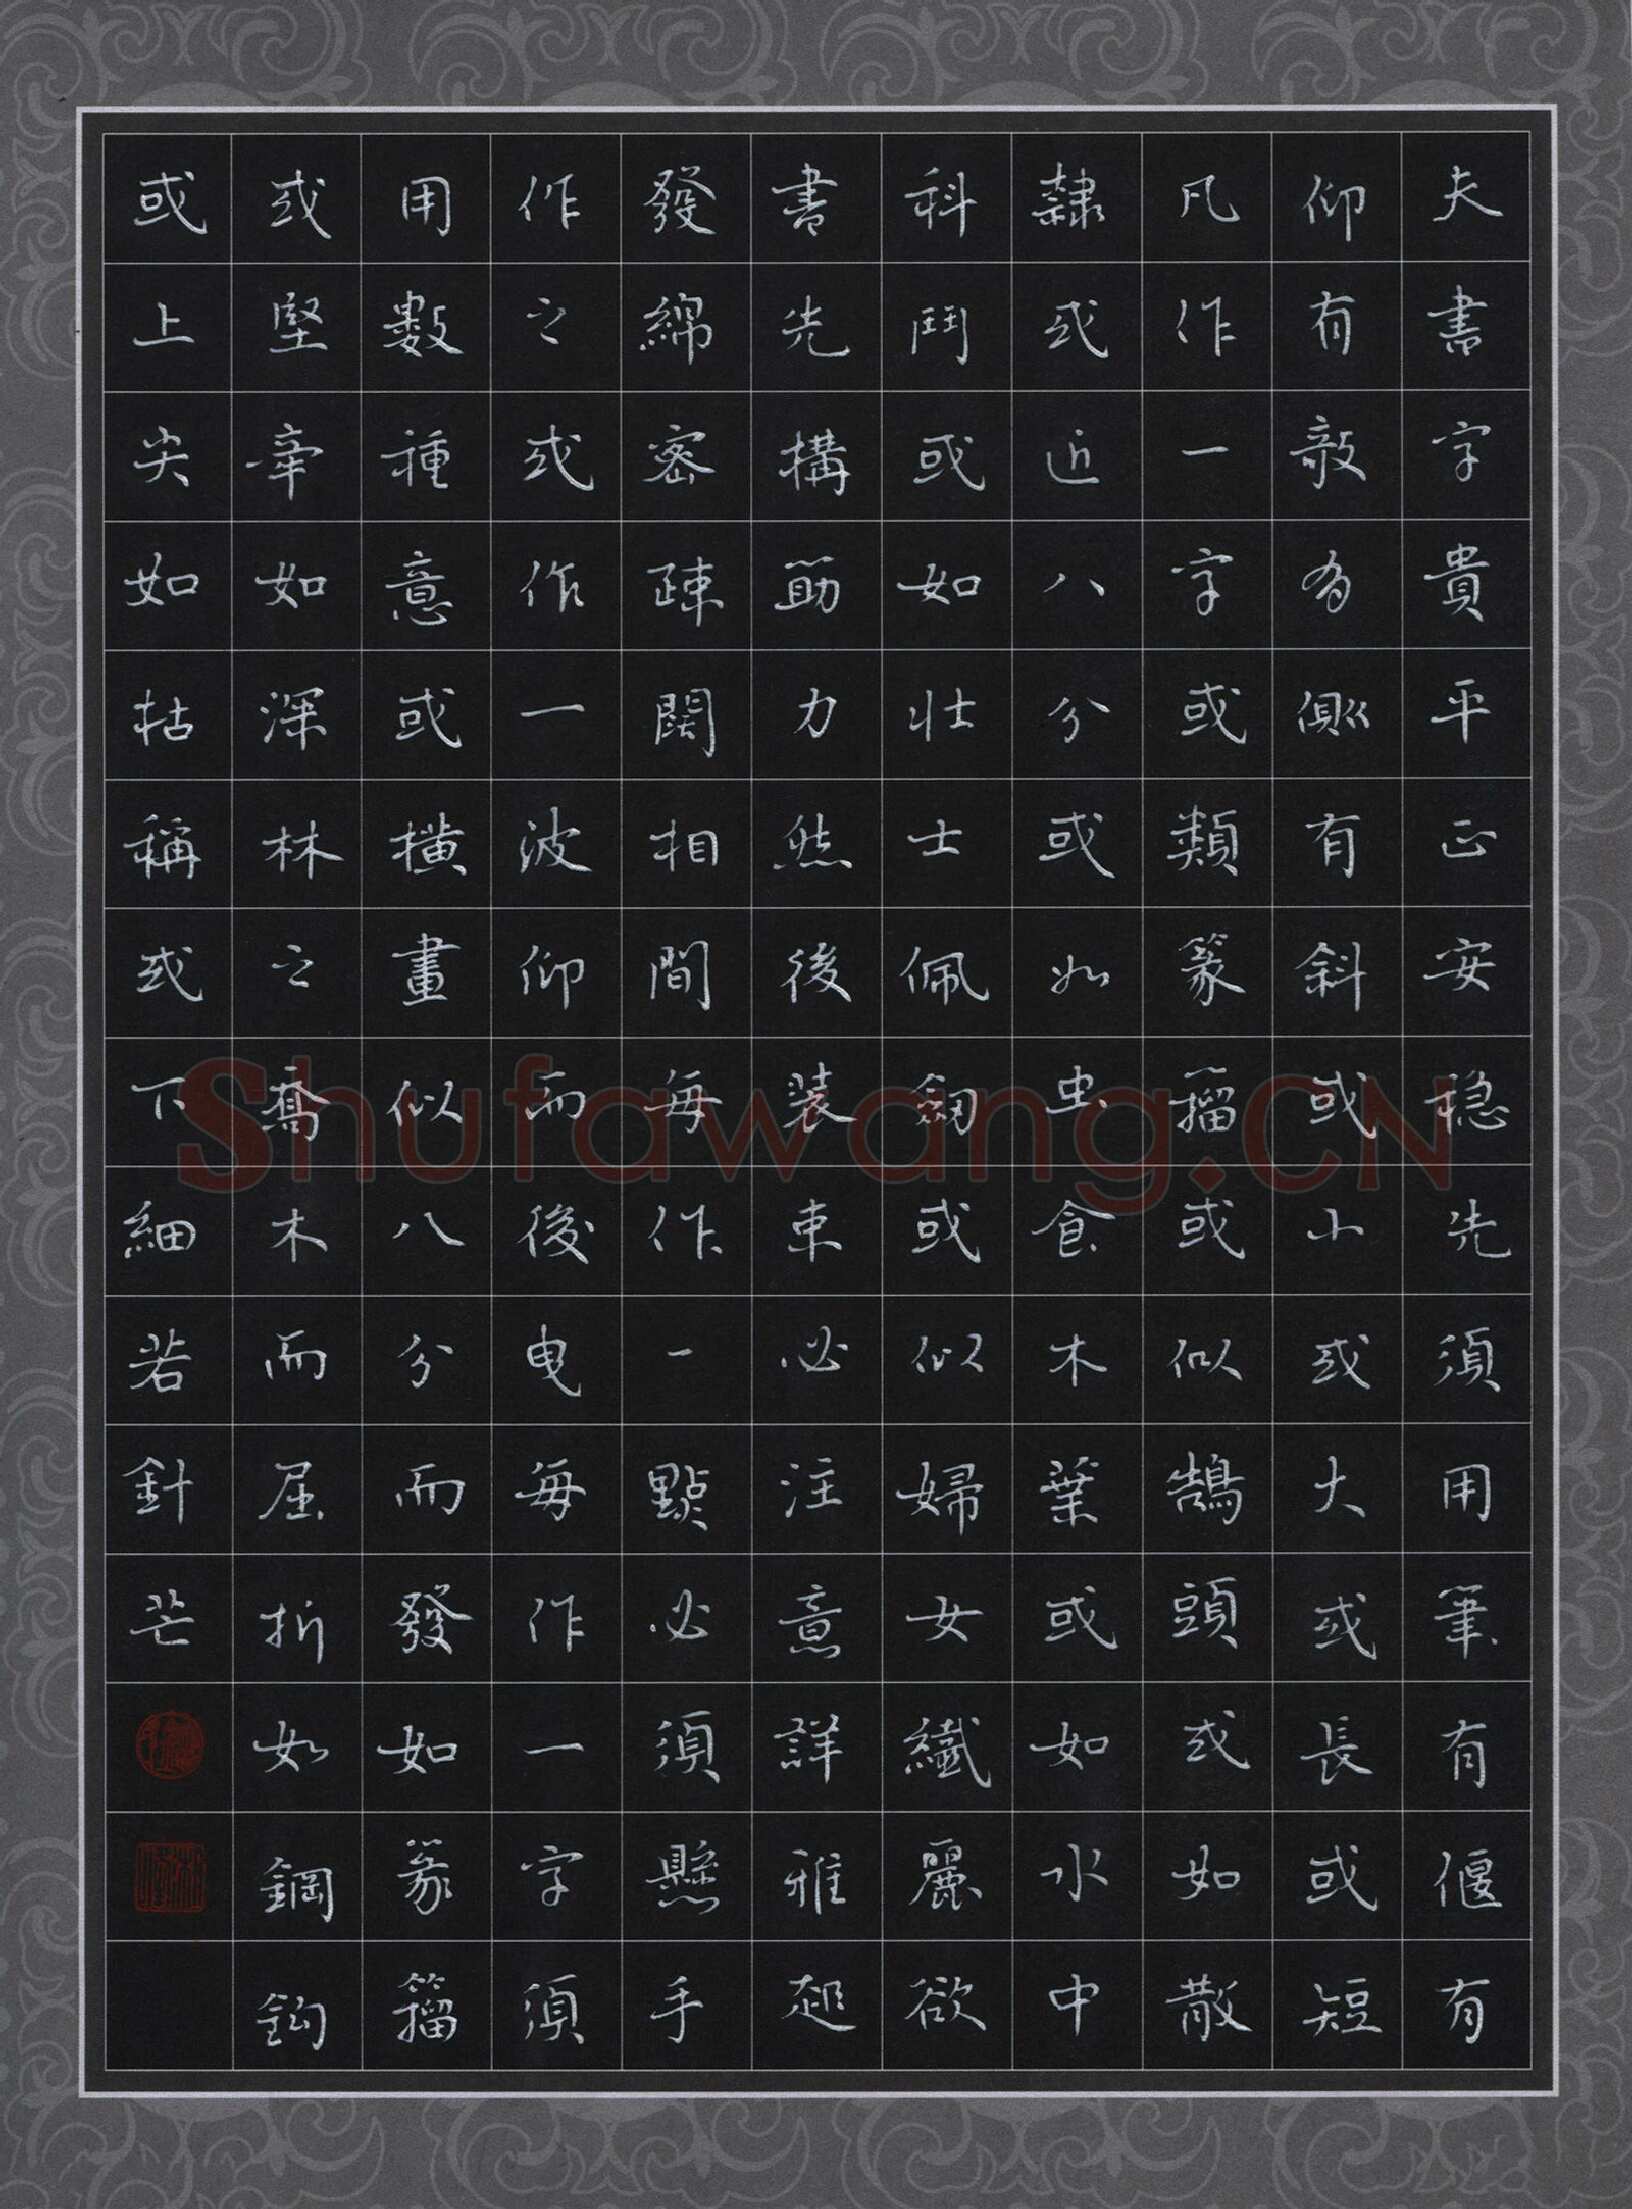 夫書字貴平正安稳先須用筆有偃有
仰有敧有側有斜或小或大或長或短
凡作一字或類篆籀或似鵠頭或如散
隸或近八分或如虫食木葉或如水中
科斗或如壮士佩劒或似婦女纖麗欲
書先構筋力然後装束必注意詳雅起
發綿密疎闊相間每作一點必須懸手
作之或作一波仰而後曳每作一字須
用數種意或橫畫似八分而發如篆籀
或竪牽如深林之喬木而屈折如鋼鈎
或上尖如枯稱或下細若針芒
Shufawang.CN